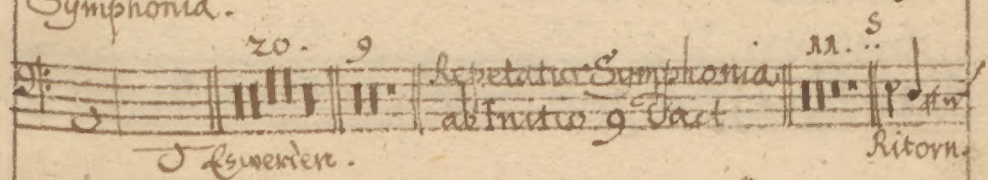 Symphonia.
20. 9 11. S
Repetatur Symphonia
ab Initio 9 Tact
O Eswerden.
Ritorn.